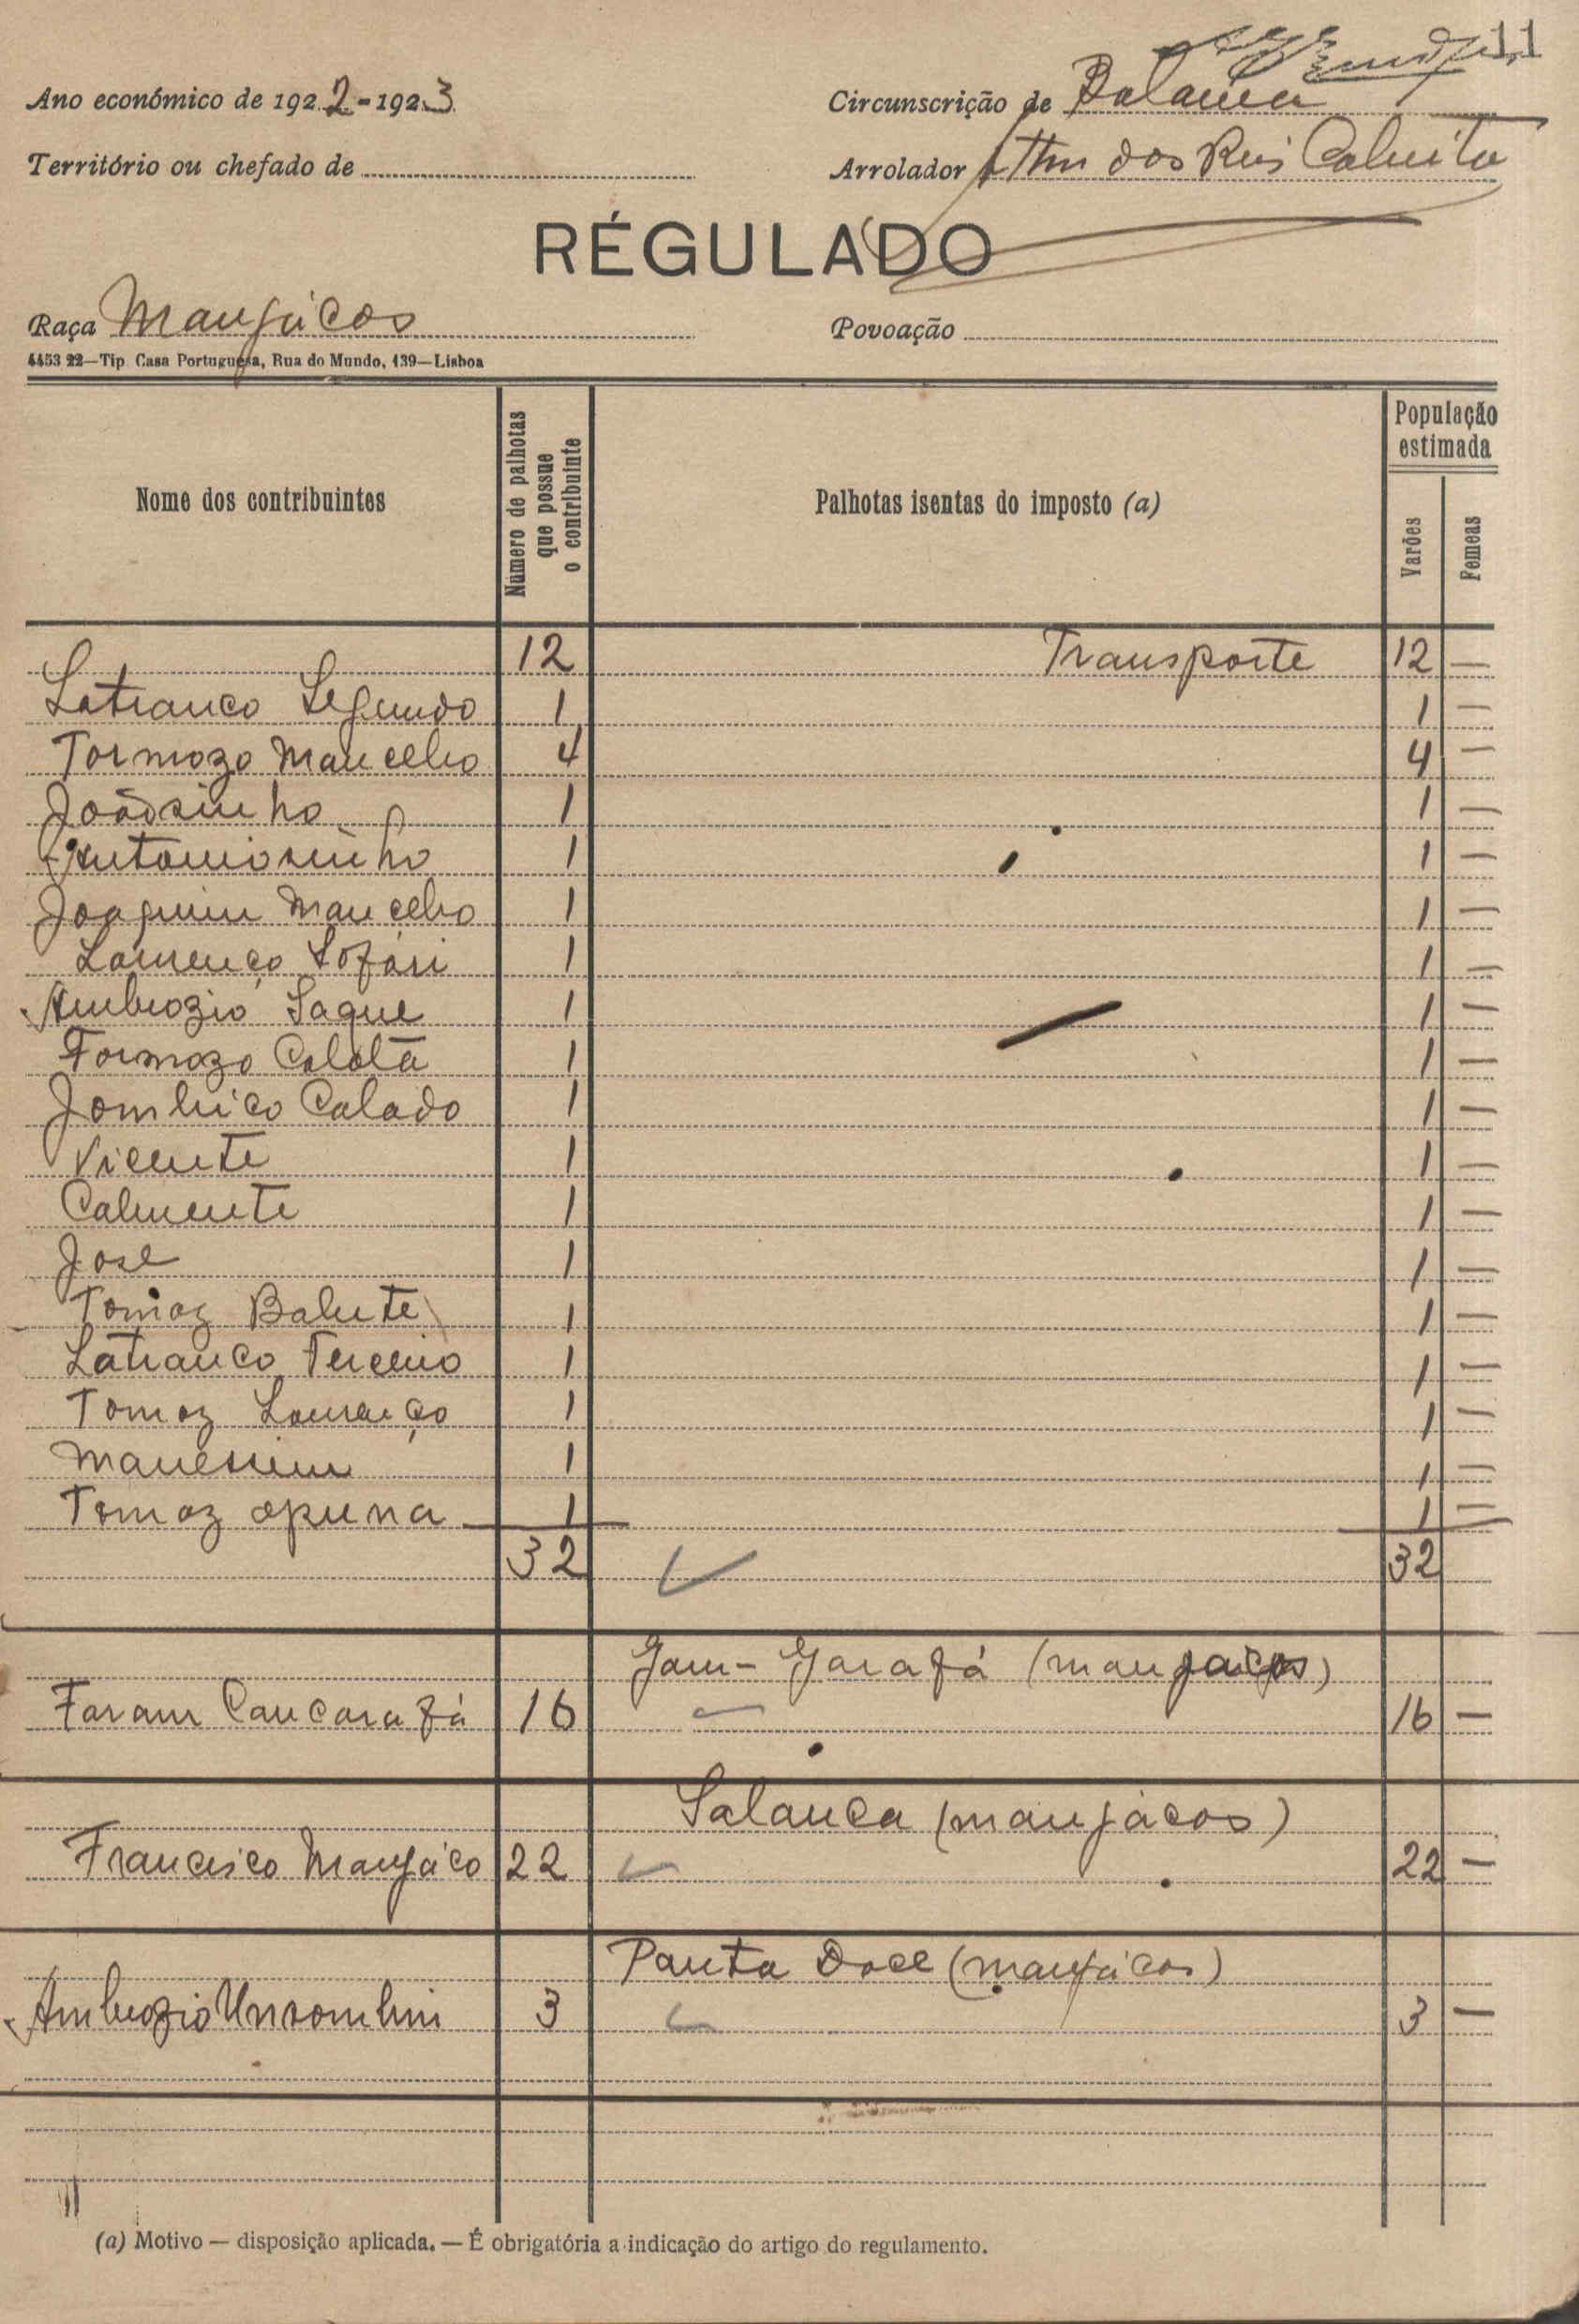 11
Ano económico de 1922-1923
Circunscrição de
Território ou chefado de
Arrolador dos Reis
RÉGULADO
Raça Manjácos
Povoação
4453 22—Tip. Casa Portuguesa, Rua do Mundo, 139—Lisboa
Nome dos contribuintes
Número de palhotas que possue o contribuinte
Palhotas isentas do imposto (a)
População estimada
Varões
Femeas
12 Transporte 12 —
Latranco Segundo 1 1 —
Tormozo Mancebo 4 4 —
Joãosinho 1 1 —
Antoniosinho 1 1 —
Joaquim Mancebo 1 1 —
Lourenço 1 1 —
Ambrozio Saque 1 1 —
Formozo Calotã 1 1 —
Calado 1 1 —
Vicente 1 1 —
Calmente 1 1 —
José 1 1 —
Tomaz Balute 1 1 —
Latranco Terceiro 1 1 —
Tomaz Lourenço 1 1 —
1 1 —
Tomaz opuna 1 1 —
32 32
Jam-Garafá (manjacos)
Faram Cancarafá 16 16 —
Salanca (manjácos)
Francisco Manjáco 22 22 —
Panta Doce (manjácos)
Ambrozio 3 3 —
(a) Motivo — disposição aplicada. — É obrigatória a indicação do artigo do regulamento.